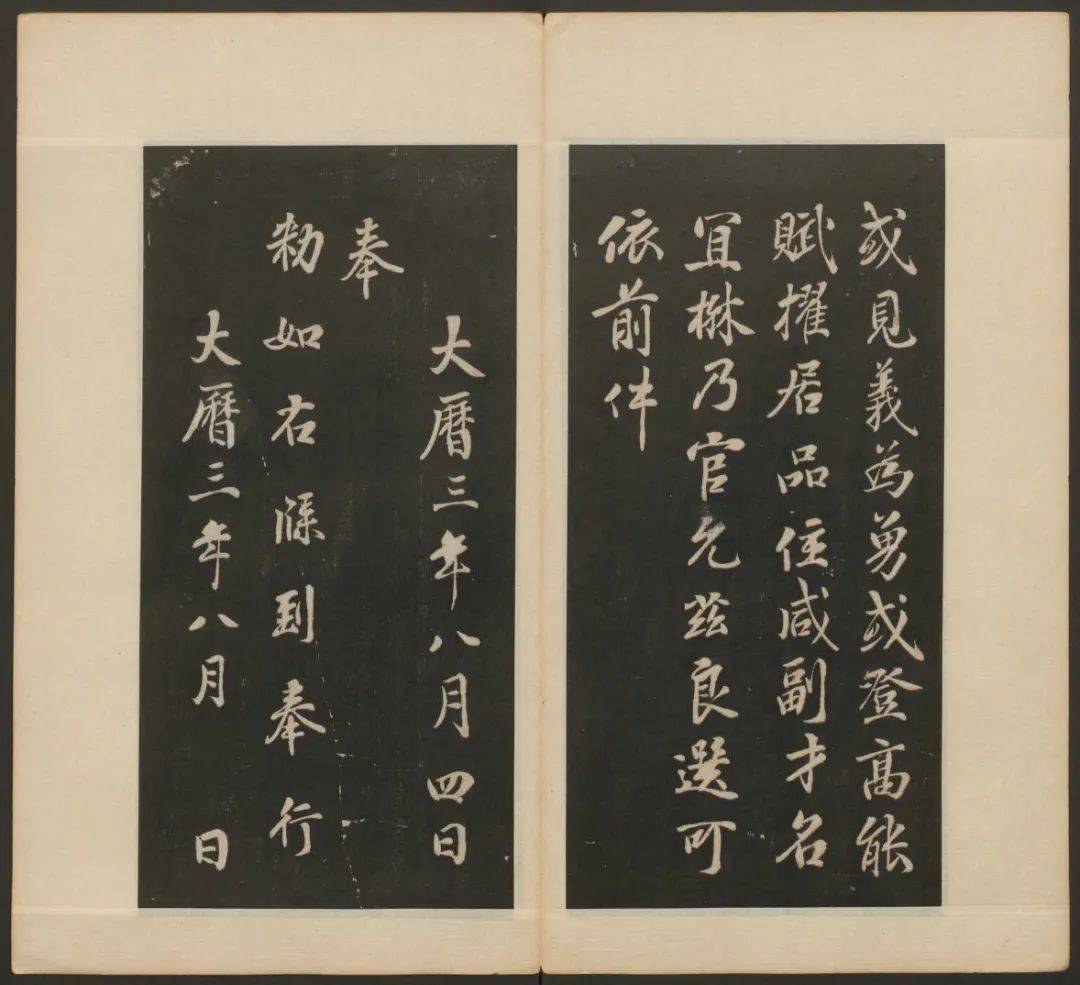 或見義為勇或登髙能
賦擢居品位咸副才名
冝楙乃官允茲良選可
依前件
大曆三年八月四日
奉
勑如右牒到奉行
大曆三年八月 日